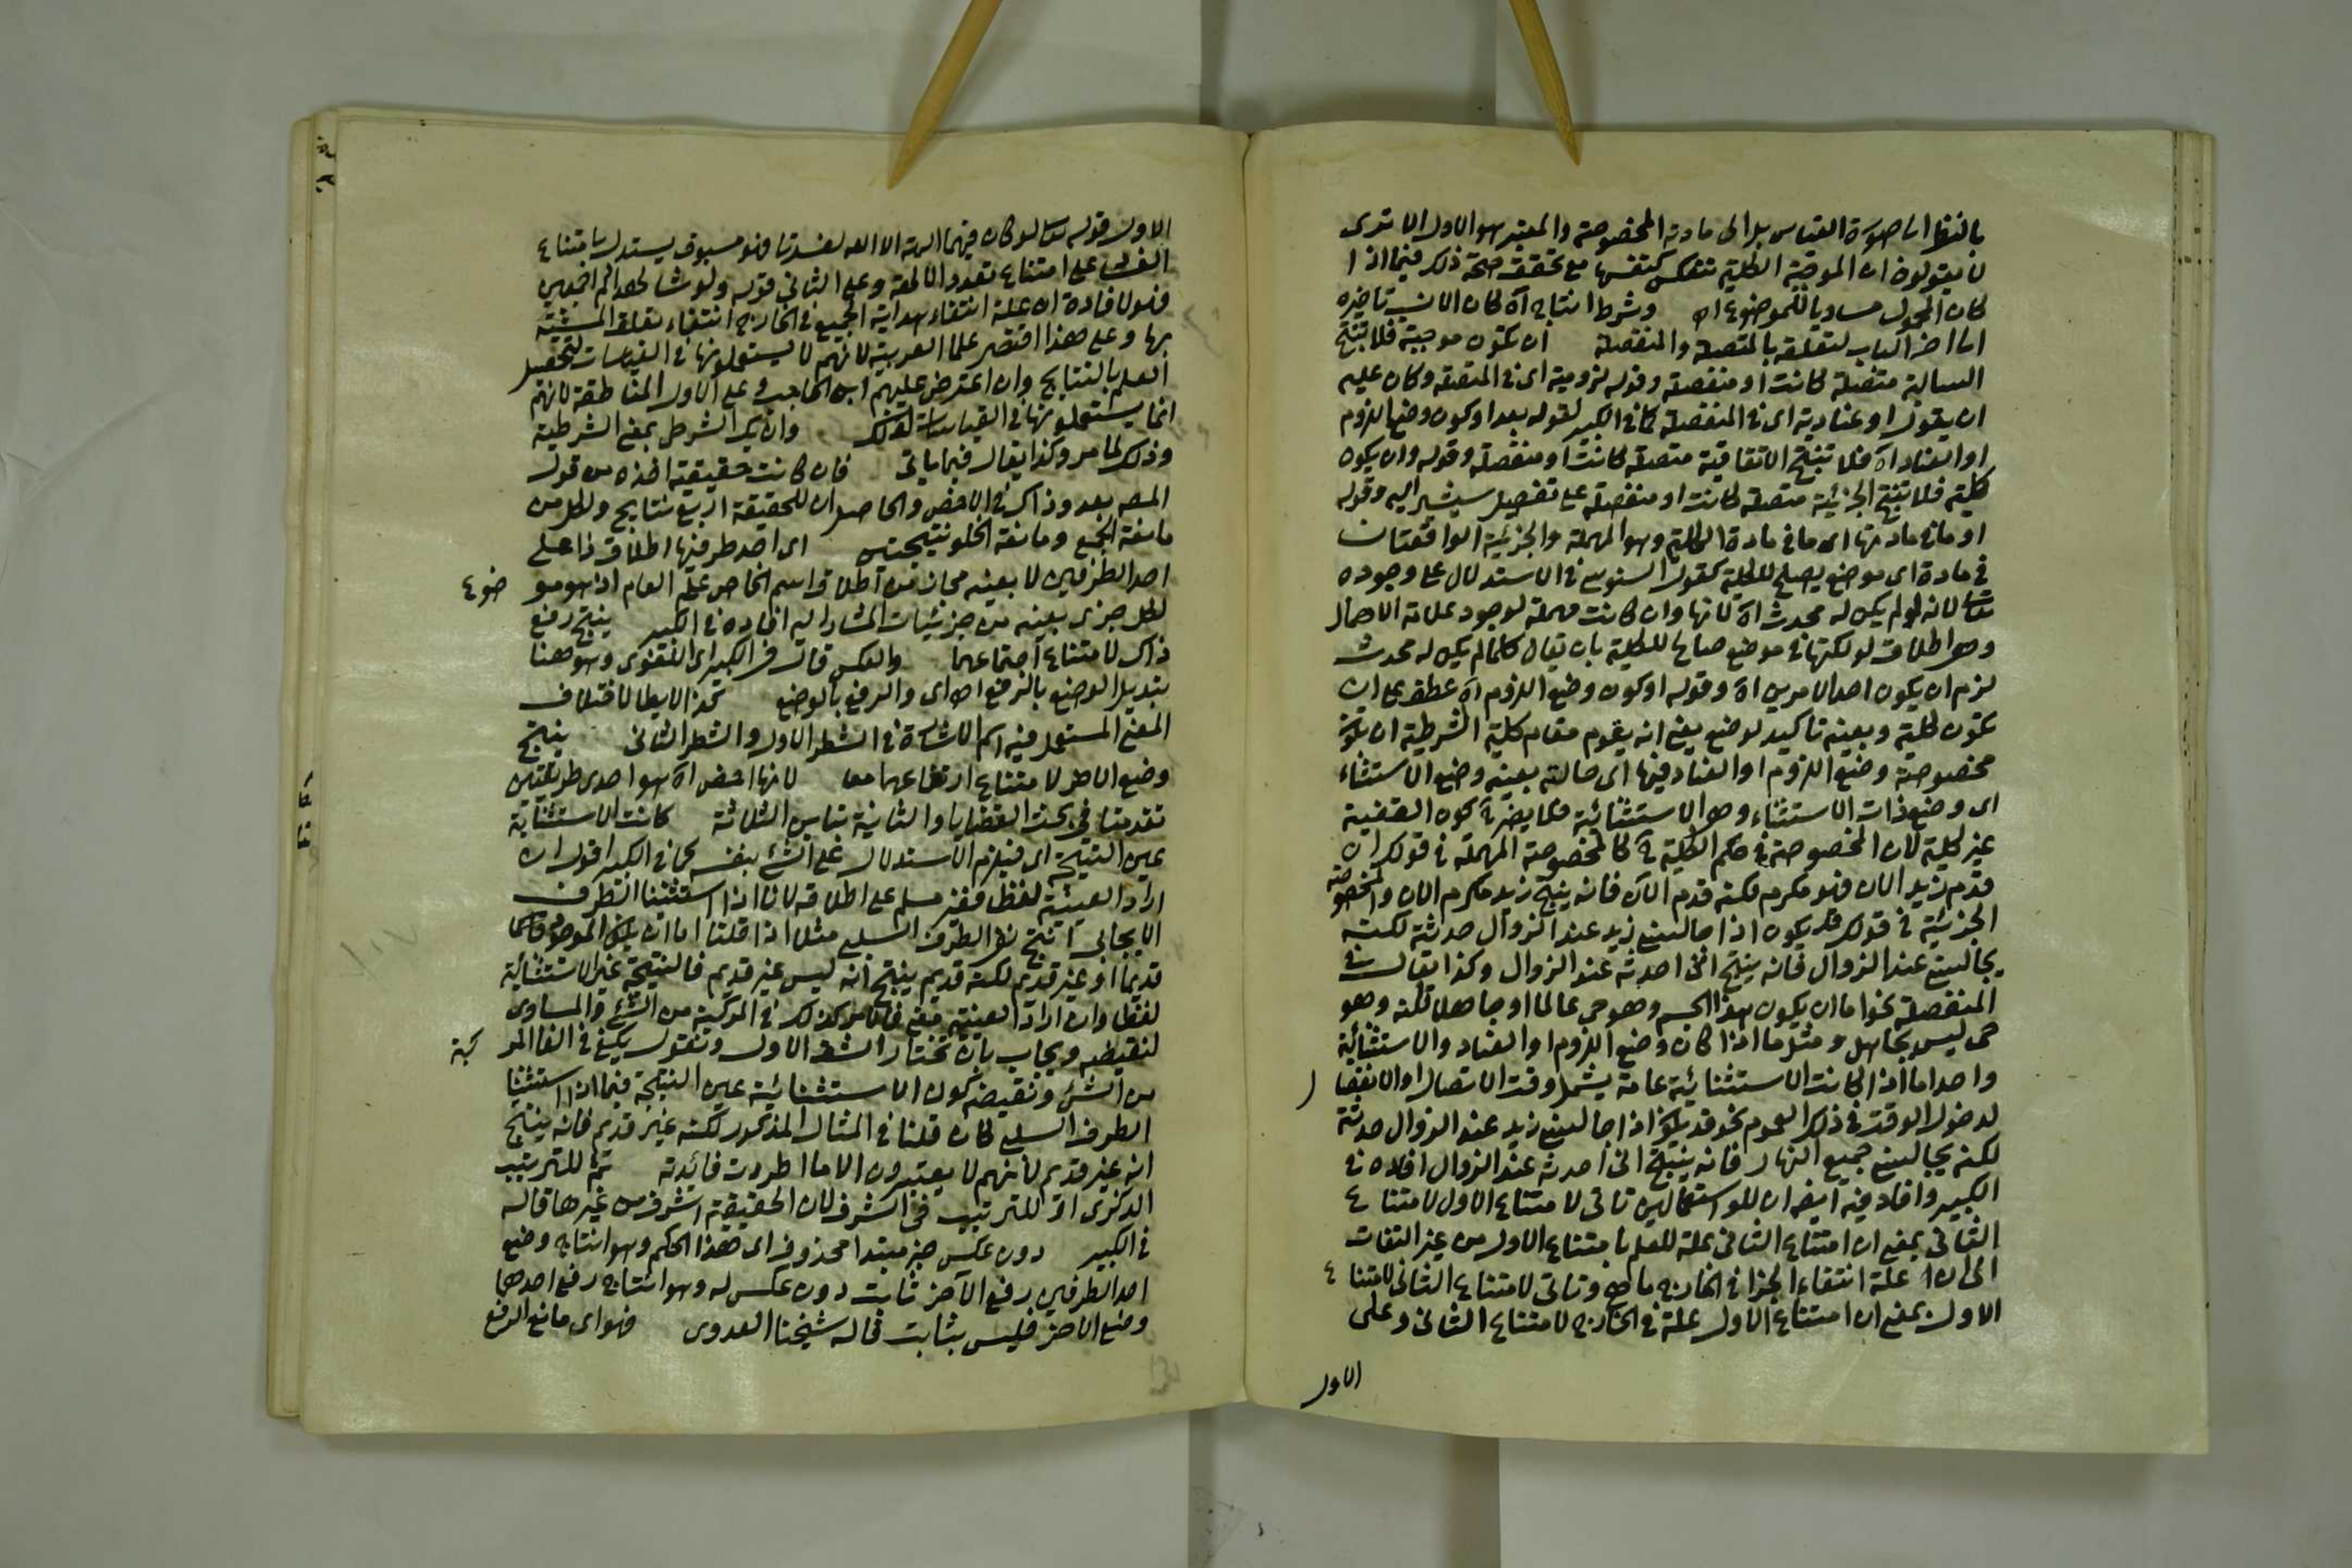 بالنظر الى صورة القياس بل الى مادته المخصوصة والمعتبر هو الاول الا ترى
لا يقولون ان الموجبة الكلية تنعكس كنفسها مع تحقق صحة ذلك فيما اذا
كان المحمول مساويا للموضوع اه وشرط انتاجه اه كان الانسب تاخيره
الى اخر الباب لتعلقه بالمتصلة والمنفصلة ان تكون موجبة فلا تنتج
السالبة متصلة كانت او منفصلة وقوله لزومية اى فى المتصلة وكان عليه
ان يقول او عنادية اى فى المنفصلة كما فى الكبير لقوله بعد او كون وضع اللزوم
او العناد اه فلا تنتج الاتفاقية متصلة كانت او منفصلة وقوله وان يكون
كلية فلا تنتج الجزئية متصلة كانت او منفصلة على تفصيل سيشير اليه وقوله
او ما فى مادتها اى ما فى مادة الكلية وهو المهملة والجزئية الواقعتان
فى مادة اى موضع يصلح للكلية كقول السنوسى فى الاستدلال على وجوده
تعالى لانه لو لم يكن له محدث اه لانها وان كانت مهملة لوجود علامة الاهمال
وهو اطلاق لو لكنها فى موضع صالح للكلية بان يقال كلما لم يكن له محدث
لزم ان يكون احد الامرين اه وقوله او كون وضع اللزوم اه عطف على ان
تكون كلية وبعينه تاكيد لوضع يعنى انه يقوم مقام كلية الشرطية ان تكون
مخصوصة وضع اللزوم او العناد فيها اى حالته بعينه وضع الاستثناء
اى وضع ذات الاستثناء وهو الاستثنائية فلا يضر كون القضية
غير كلية لان المخصوصة فى حكم الكلية كالمخصوصة المهملة فى قولك ان
قدم زيد الان فهو مكرم لكنه قدم الان فانه ينتج زيد مكرم الان والمخصوصة
الجزئية فى قولك قد يكون اذا جالسنى زيد عند الزوال حدثته لكنه
يجالسنى عند الزوال فانه ينتج انى احدثه عند الزوال وكذا يقال فى
المنفصلة نحو اما ان يكون هذا الجسم وهو حى عالما او جاهلا لكنه وهو
حى ليس بجاهل ومثل ما اذا كان وضع اللزوم او العناد والاستثنائية
واحدا ما اذا كانت الاستثنائية عامة يشمل وقت الاتصال او الانفصال
لدخول الوقت فى ذلك العموم نحو قد يكون اذا جالسنى زيد عند الزوال حدثته
لكنه يجالسنى جميع النهار فانه ينتج انى احدثه عند الزوال افاده فى
الكبير وافاد فيه ايضا ان للو استعمالين تاتى لامتناع الاول لامتناع
الثانى بمعنى ان امتناع الثانى علة للعلم بامتناع الاول من غير التفات
الى ان علة انتفاء الجزا فى الخارج ما هى وتاتى لامتناع الثانى لامتناع
الاول بمعنى ان امتناع الاول علة فى الخارج لامتناع الثانى وعلى
الاول
الاول قوله تعالى لو كان فيهما الهة الا الله لفسدتا فهو مسوق يستدل بامتناع
الفساد على امتناع تعدد الالهة وعلى الثانى قوله ولو شا لهداكم اجمعين
فهو لافادة ان علة انتفاء هداية الجميع فى الخارج انتفاء تعلق المشيئة
بها وعلى هذا اقتصر علما العربية لانهم لا يستعملونها فى القياسات لتحصيل
العلم بالنتايج وان اعترض عليهم ابن الحاجب وعلى الاول المناطقة لانهم
انما يستعملونها فى القياسات لذلك وان يكن الشرطى بمعنى الشرطية
وذلك لما مر وكذا يقال فيما ياتى فان كانت حقيقية اخذه من قول
المصه بعد وذاك فى الاخص والحاصل ان للحقيقية اربع نتايج ولكل من
مانعة الجمع ومانعة الخلو نتيجتين اى احد طرفيها اطلاق ذا على
احد الطرفين لا بعينه مجاز من اطلاق اسم الخاص على العام اذ هو موضوع
لكل جزئى بعينه من جزئيات المشار اليه افاده فى الكبير ينتج رفع
ذاك لامتناع اجتماعهما والعكس قال فى الكبير اى اللغوى وهو هنا
تبديل الوضع بالرفع اه اى والرفع بالوضع
المعنى المستعمل فيه اسم الاشارة فى الشطر الاول والشطر الثانى ينتج
وضع الاخر لامتناع ارتفاعهما معا لانها اخص اه هو احدى طريقتين
تقدمتا فى بحث القضايا والثانية تباين الثلاثة كانت الاستثنائية
عين النتيجة اى فيلزم الاستدلال على الشئ بنفسه كما فى الكبير اقول ان
اراد العينية لفظا فغير مسلم على اطلاقه لانا اذا استثنينا الطرف
الايجابى انتج نفى الطرف السلبى مثلا اذا قلنا اما ان يكون الموجود
قديما او غير قديم لكنه قديم ينتج انه ليس غير قديم فالنتيجة غير الاستثنائية
لفظا وان اراد العينية معنى كذلك فى المركبة من الشئ والمساوى
لنقيضه ويجاب بان نختار الشق الاول ونقول يكفى فى الغا المركبة
من الشئ ونقيضه كون الاستثنائية عين النتيجة فيما اذا استثنينا
الطرف السلبى كان قلنا فى المثال المذكور لكنه غير قديم فانه ينتج
انه غير قديم لانهم لا يعتبرون الا ما اطردت فائدته ثم للترتيب
الذكرى او للترتيب فى الشرف لان الحقيقية اشرف من غيرها قاله
فى الكبير دون عكس خبر مبتدا محذوف اى هذا الحكم وهو انتاج وضع
احد الطرفين رفع الاخر ثابت دون عكس له وهو انتاج رفع احدهما
وضع الاخر فليس بثابت قاله شيخنا العدوى فهو اى مانع الرفع